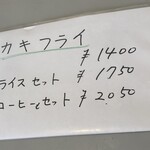 カキフライ
¥1400
ライスセット ¥1750
コーヒーセット ¥2050